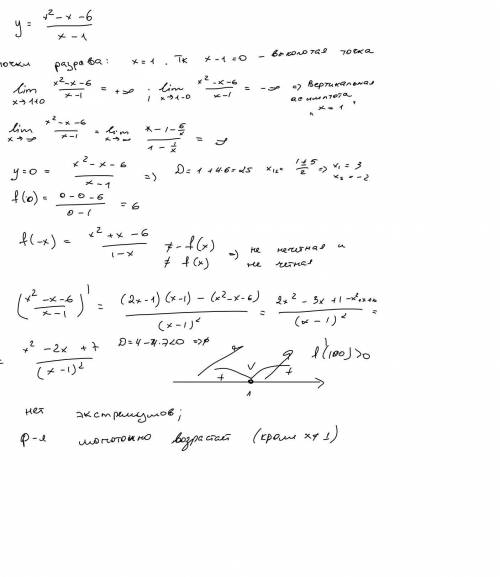 y = (x² - x - 6)/(x - 1)
точки разрыва: x=1, Тк x-1=0 - выколотая точка
lim x→1+0 (x²-x-6)/(x-1) = +∞ ; lim x→1-0 (x²-x-6)/(x-1) = -∞ => Вертикальная
асимптота
"x=1"
lim x→∞ (x²-x-6)/(x-1) = lim x→∞ (x-1-6/x)/(1-1/x) = ∞
y=0 = (x²-x-6)/(x-1) => D=1+4·6=25 x₁₂= (1±5)/2 => x₁=3
x₂=-2
f(0) = (0-0-6)/(0-1) = 6
f(-x) = (x²+x-6)/(1-x) ≠ -f(x)
≠ f(x) => не нечетная и
не четная
((x²-x-6)/(x-1))' = ((2x-1)(x-1)-(x²-x-6))/(x-1)² = (2x²-3x+1-x²+x+6)/(x-1)² =
= (x²-2x+7)/(x-1)² D=4-4·7<0 => ∅
f'(100)>0
+ V +
1
нет экстремумов;
Ф-я монотонно возрастает (кроме x≠1)